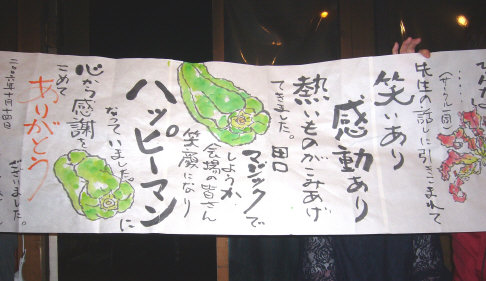 先生の話しに引きこまれて
笑いあり
感動あり
熱いものがこみあげ
てきました。
田口
マジックで
しょうか
会場の皆さん
笑顔になり
ハッピーマンに
なっていました。
心から感謝を
こめて
ありがとう
ございました。